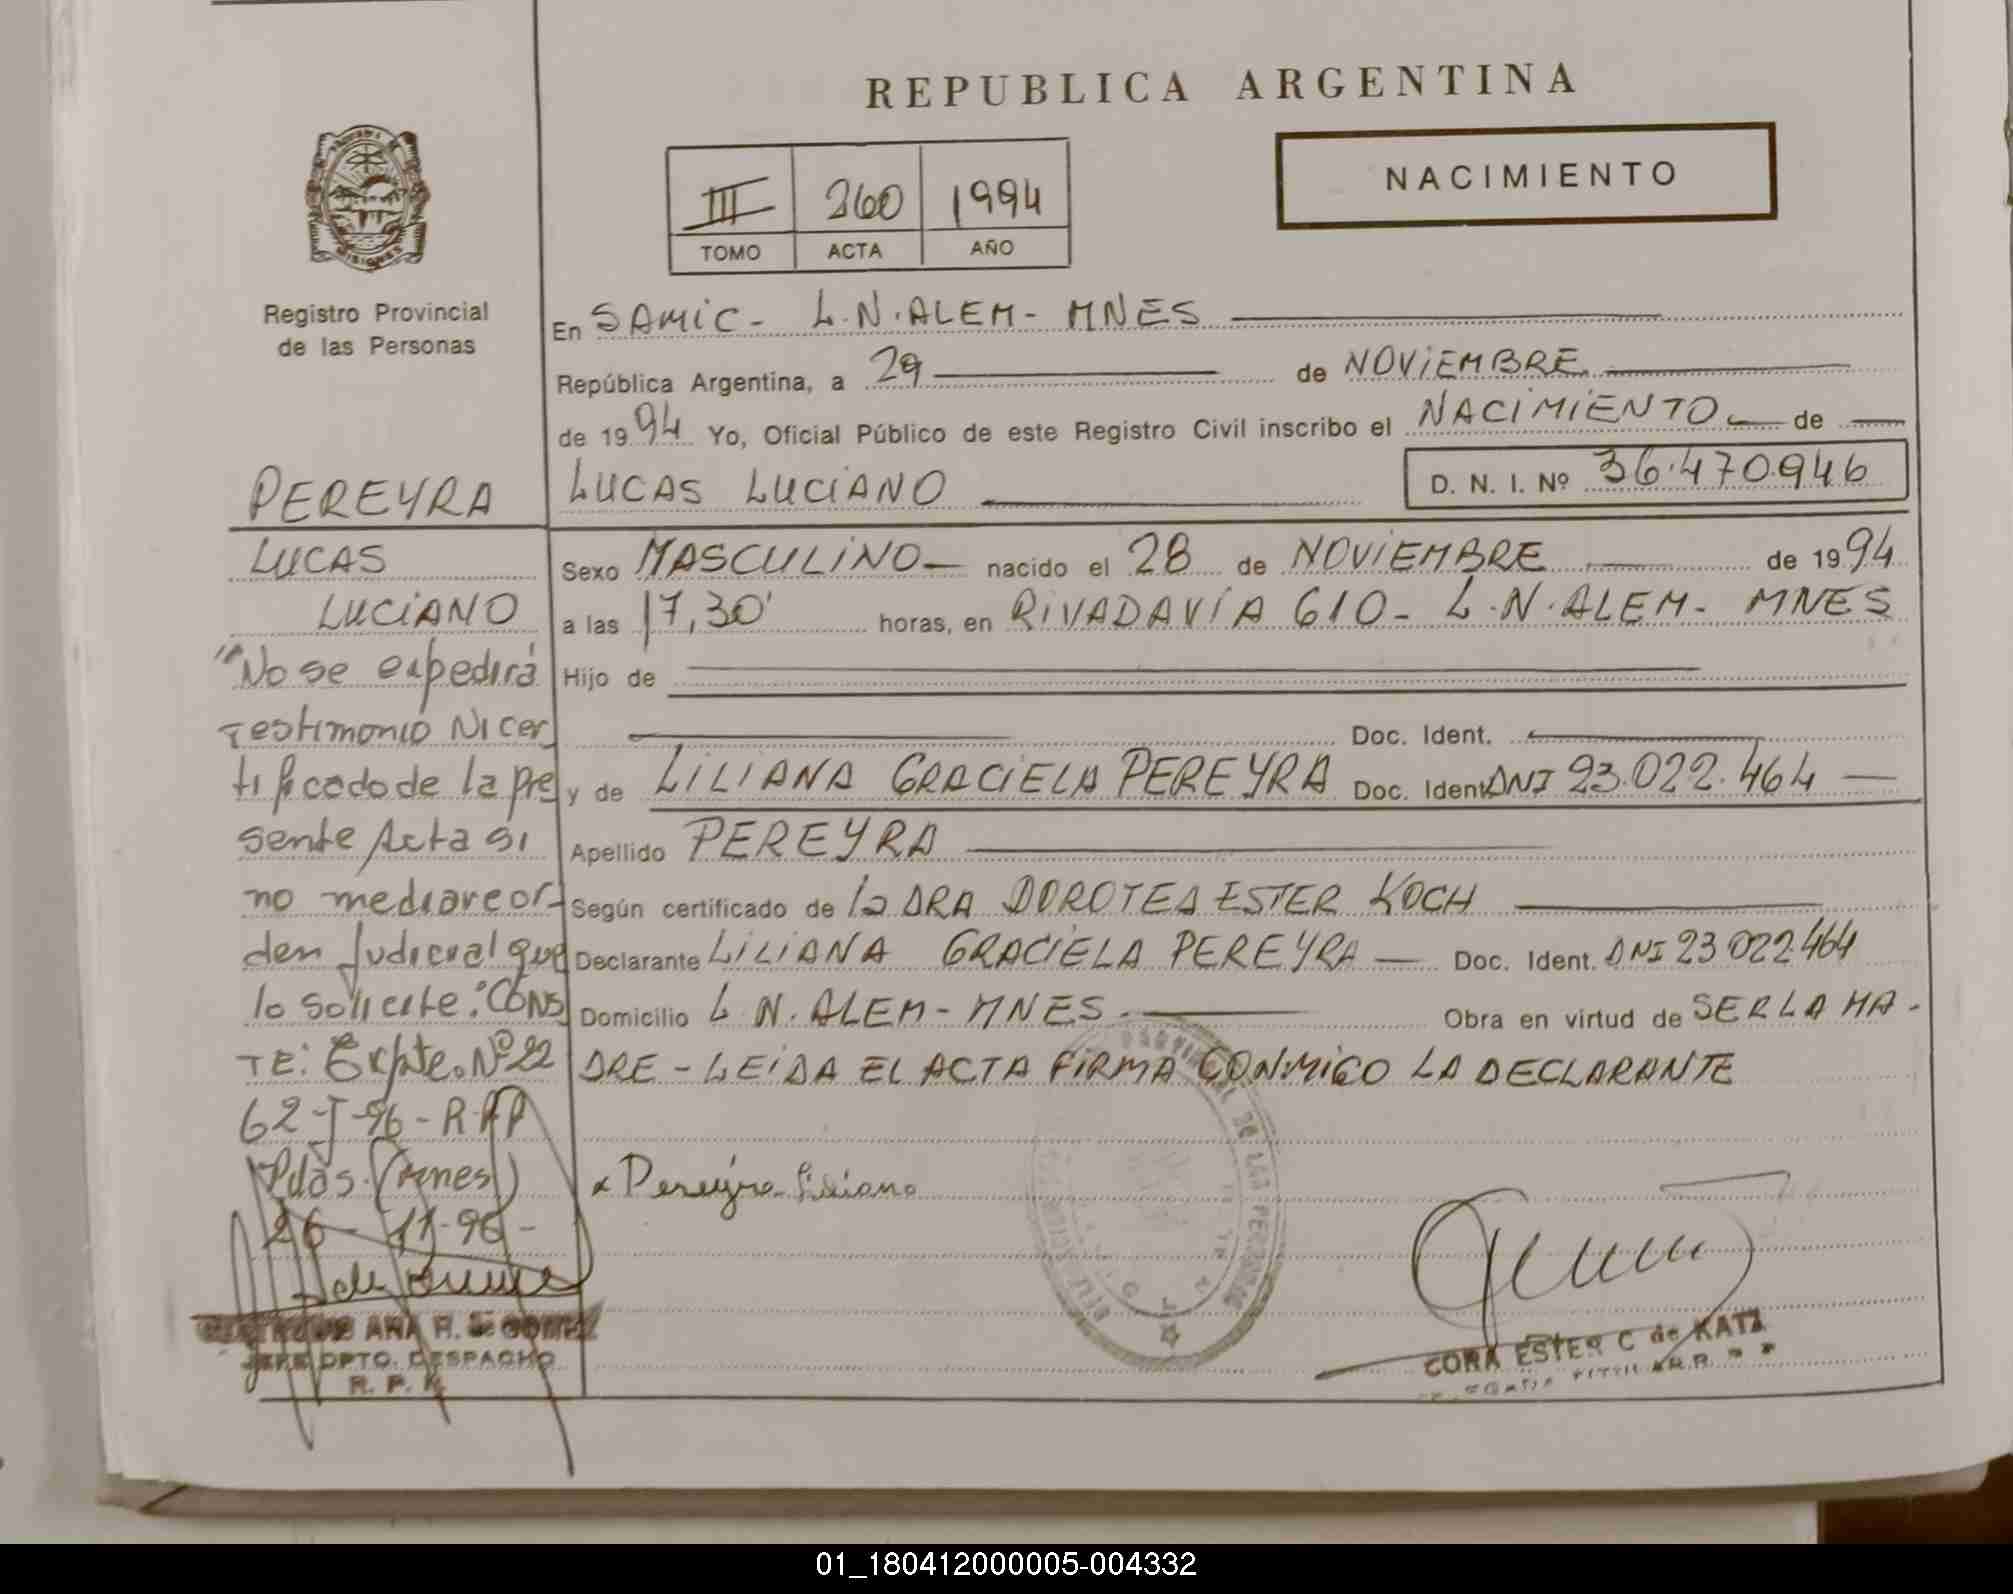 REPUBLICA ARGENTINA
NACIMIENTO
III 260 1994
TOMO ACTA AÑO
MISIONES
Registro Provincial
de las Personas
En SAMIC - L.N. ALEM - MNES
República Argentina, a 29 de NOVIEMBRE
de 1994 Yo, Oficial Público de este Registro Civil inscribo el NACIMIENTO de
LUCAS LUCIANO D. N. I. Nº 36.470.946
Sexo MASCULINO nacido el 28 de NOVIEMBRE de 1994
a las 17,30' horas, en RIVADAVIA 610 - L.N. ALEM - MNES
Hijo de
Doc. Ident.
y de LILIANA GRACIELA PEREYRA Doc. Ident. DNI 23.022.464
Apellido PEREYRA
Según certificado de la DRA DOROTEA ESTER KOCH
Declarante LILIANA GRACIELA PEREYRA Doc. Ident. DNI 23 022.464
Domicilio L N. ALEM - MNES Obra en virtud de SER LA MA-
DRE - LEIDA EL ACTA FIRMA CONMIGO LA DECLARANTE
x Pereyra Liliana
CORA ESTER C de KATZ
PEREYRA
LUCAS
LUCIANO
"No se expedirá
Testimonio Ni cer
tificado de la pre
sente Acta si
no mediare or-
den Judicial que
lo solicite." CONS
TE: Expte. Nº 22
62-J-96-R.P.P
Pdas. (Mnes)
26-11-96-
ANA R. de GOMEZ
JEFE DPTO. DESPACHO
R. P. P.
01_180412000005-004332